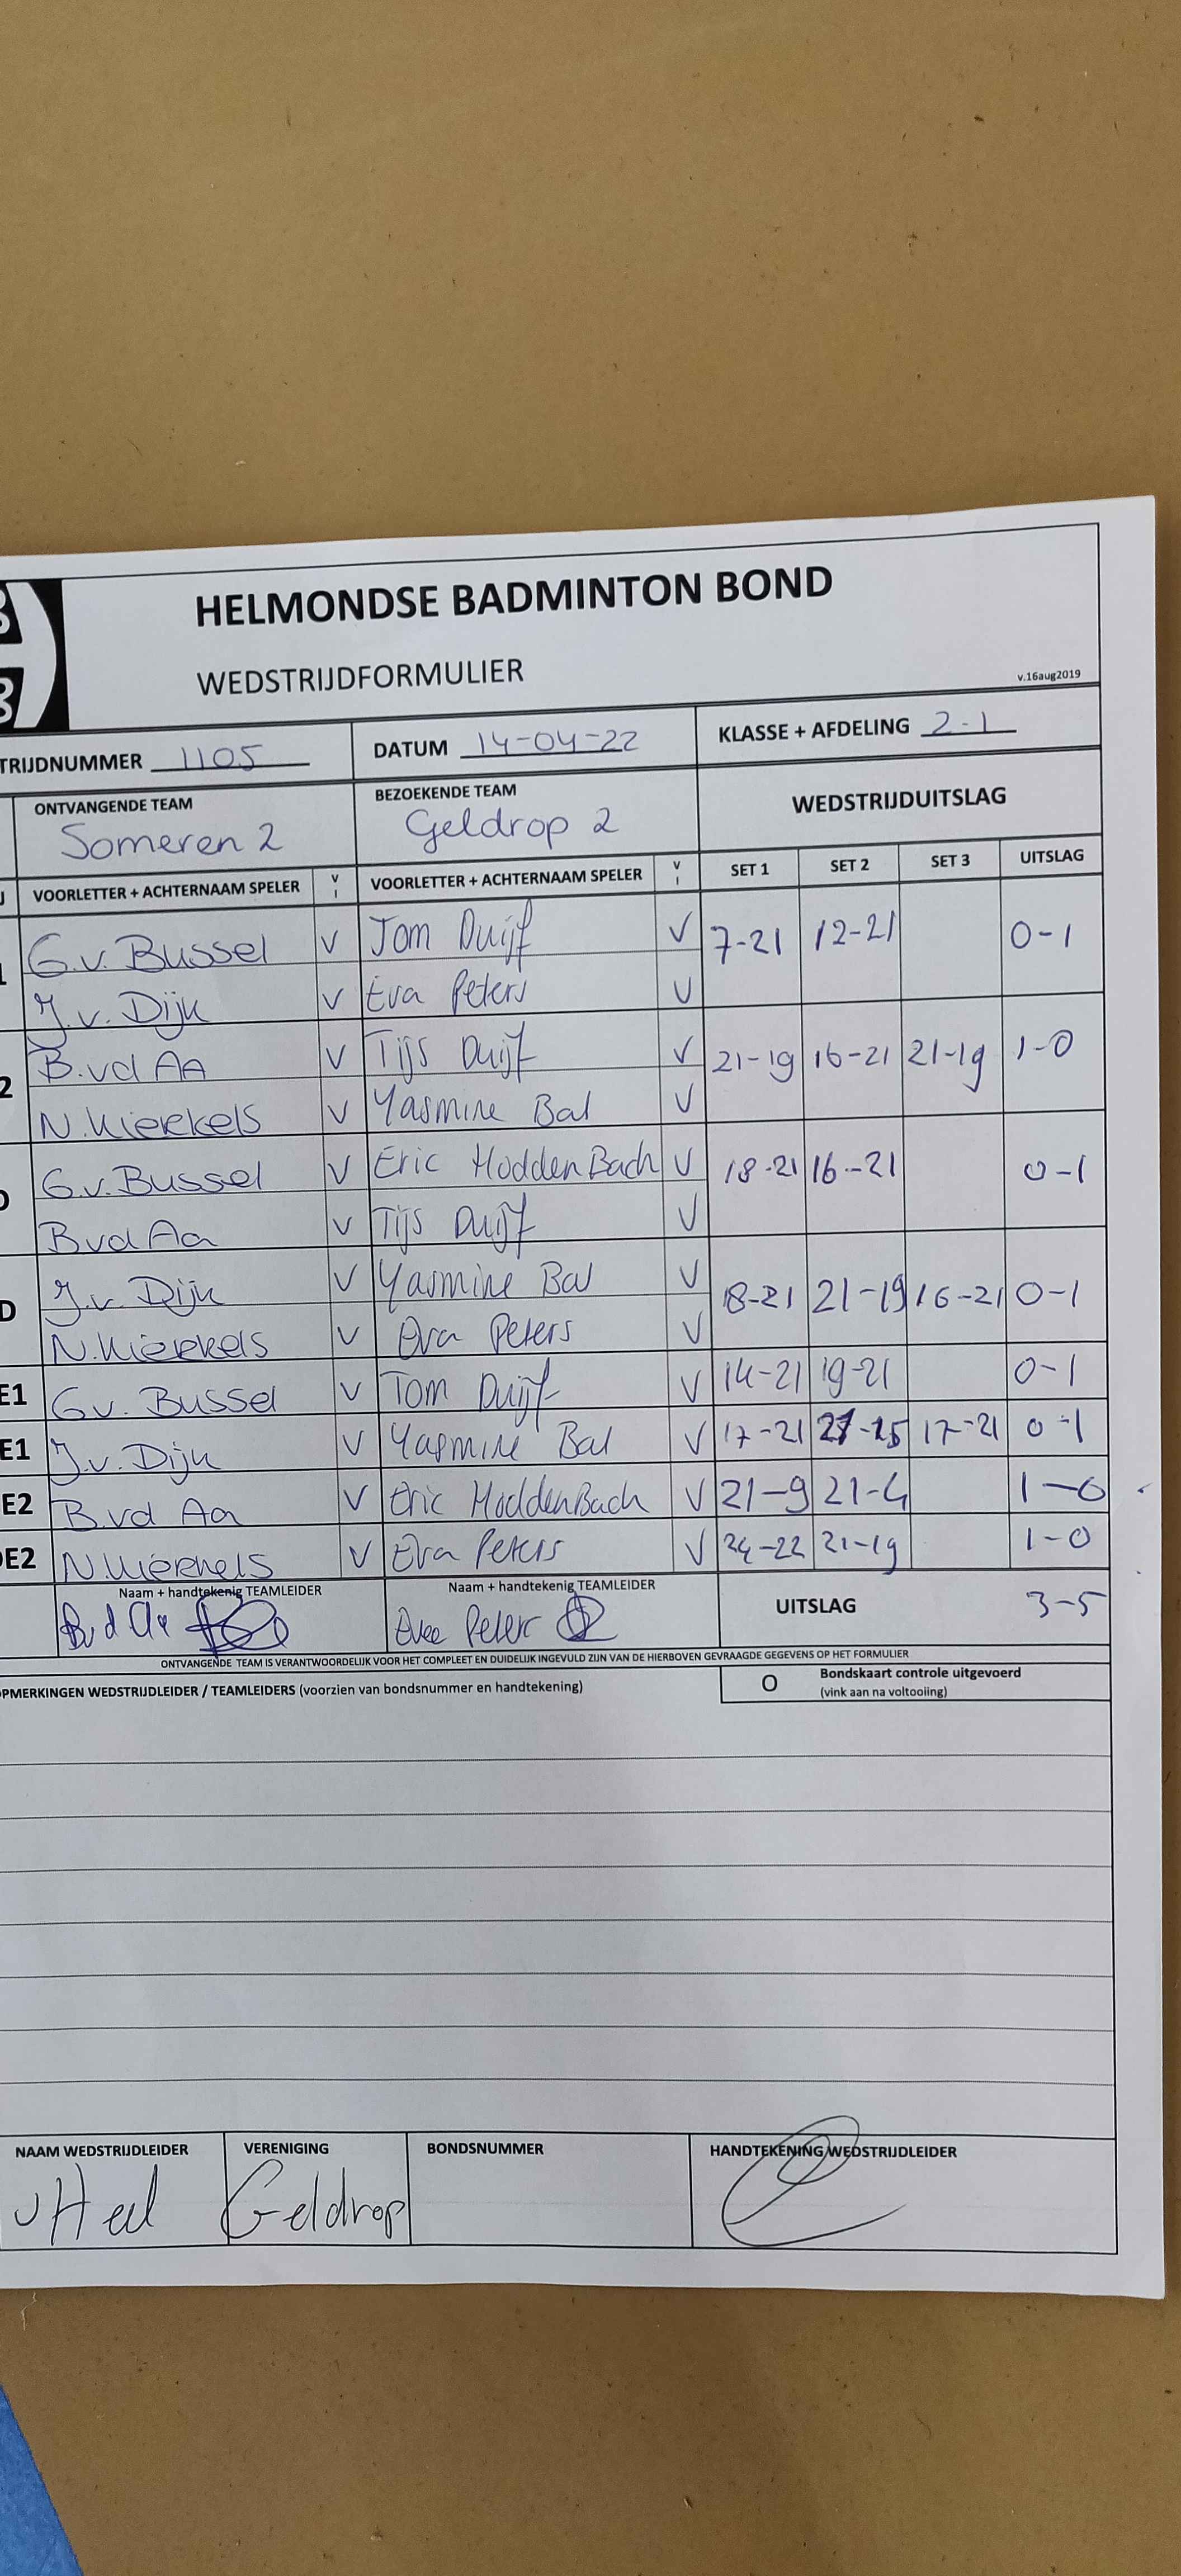 HELMONDSE BADMINTON BOND
WEDSTRIJDFORMULIER
v.16aug2019
TRIJDNUMMER 1105 DATUM 14-04-22 KLASSE + AFDELING 2-1
ONTVANGENDE TEAM BEZOEKENDE TEAM WEDSTRIJDUITSLAG
Someren 2 Geldrop 2
VOORLETTER + ACHTERNAAM SPELER V I VOORLETTER + ACHTERNAAM SPELER V I SET 1 SET 2 SET 3 UITSLAG
G.v. Bussel V Tom Duijf V 7-21 12-21 0-1
J.v. Dijk V Eva Peters V
2 B.vd Aa V Tijs Duijf V 21-19 16-21 21-19 1-0
N.Kierkels V Yasmine Bal V
G.v. Bussel V Eric HoddenBach V 18-21 16-21 0-1
B vd Aa V Tijs Duijf V
D J.v. Dijk V Yasmine Bal V 18-21 21-19 16-21 0-1
N.Kierkels V Eva Peters V
E1 G.v. Bussel V Tom Duijf V 14-21 19-21 0-1
E1 J.v. Dijk V Yasmine Bal V 17-21 17-21 0-1
E2 B.vd Aa V Eric HoddenBach V 21-9 21-4 1-0
E2 N.Kierkels V Eva Peters V 24-22 21-19 1-0
Naam + handtekenig TEAMLEIDER Naam + handtekenig TEAMLEIDER UITSLAG 3-5
ONTVANGENDE TEAM IS VERANTWOORDELIJK VOOR HET COMPLEET EN DUIDELIJK INGEVULD ZIJN VAN DE HIERBOVEN GEVRAAGDE GEGEVENS OP HET FORMULIER
PMERKINGEN WEDSTRIJDLEIDER / TEAMLEIDERS (voorzien van bondsnummer en handtekening) O Bondskaart controle uitgevoerd
(vink aan na voltooiing)
NAAM WEDSTRIJDLEIDER VERENIGING BONDSNUMMER HANDTEKENING WEDSTRIJDLEIDER
Geldrop